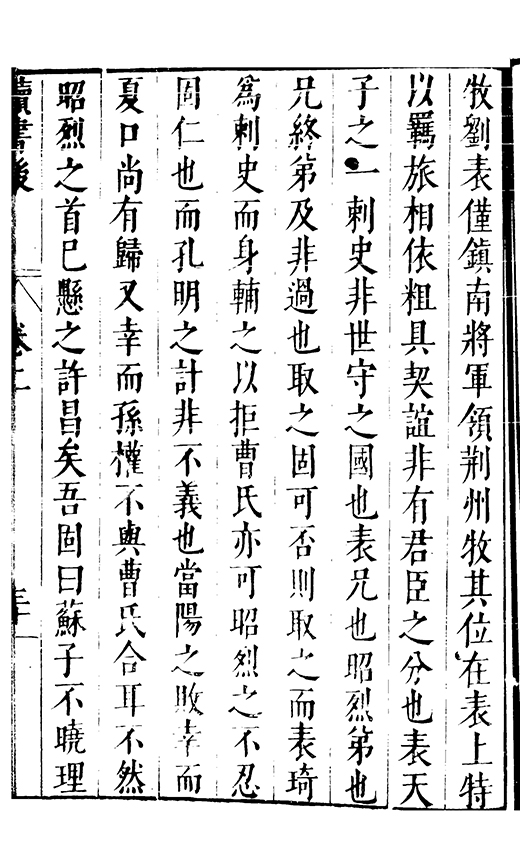 牧劉表僅鎮南將軍領荆州牧其位在表上特
以羈旅相依粗具契誼非有君臣之分也表天
子之一刺史非世守之國也表兄也昭烈第也
兄終第及非過也取之固可否則取之而表琦
爲刺史而身輔之以拒曹氏亦可昭烈之不忍
固仁也而孔明之計非不義也當陽之敗幸而
夏口尚有歸又幸而孫權不與曹氏合耳不然
昭烈之首巳懸之許昌矣吾固曰蘇子不曉理
讀書後
卷